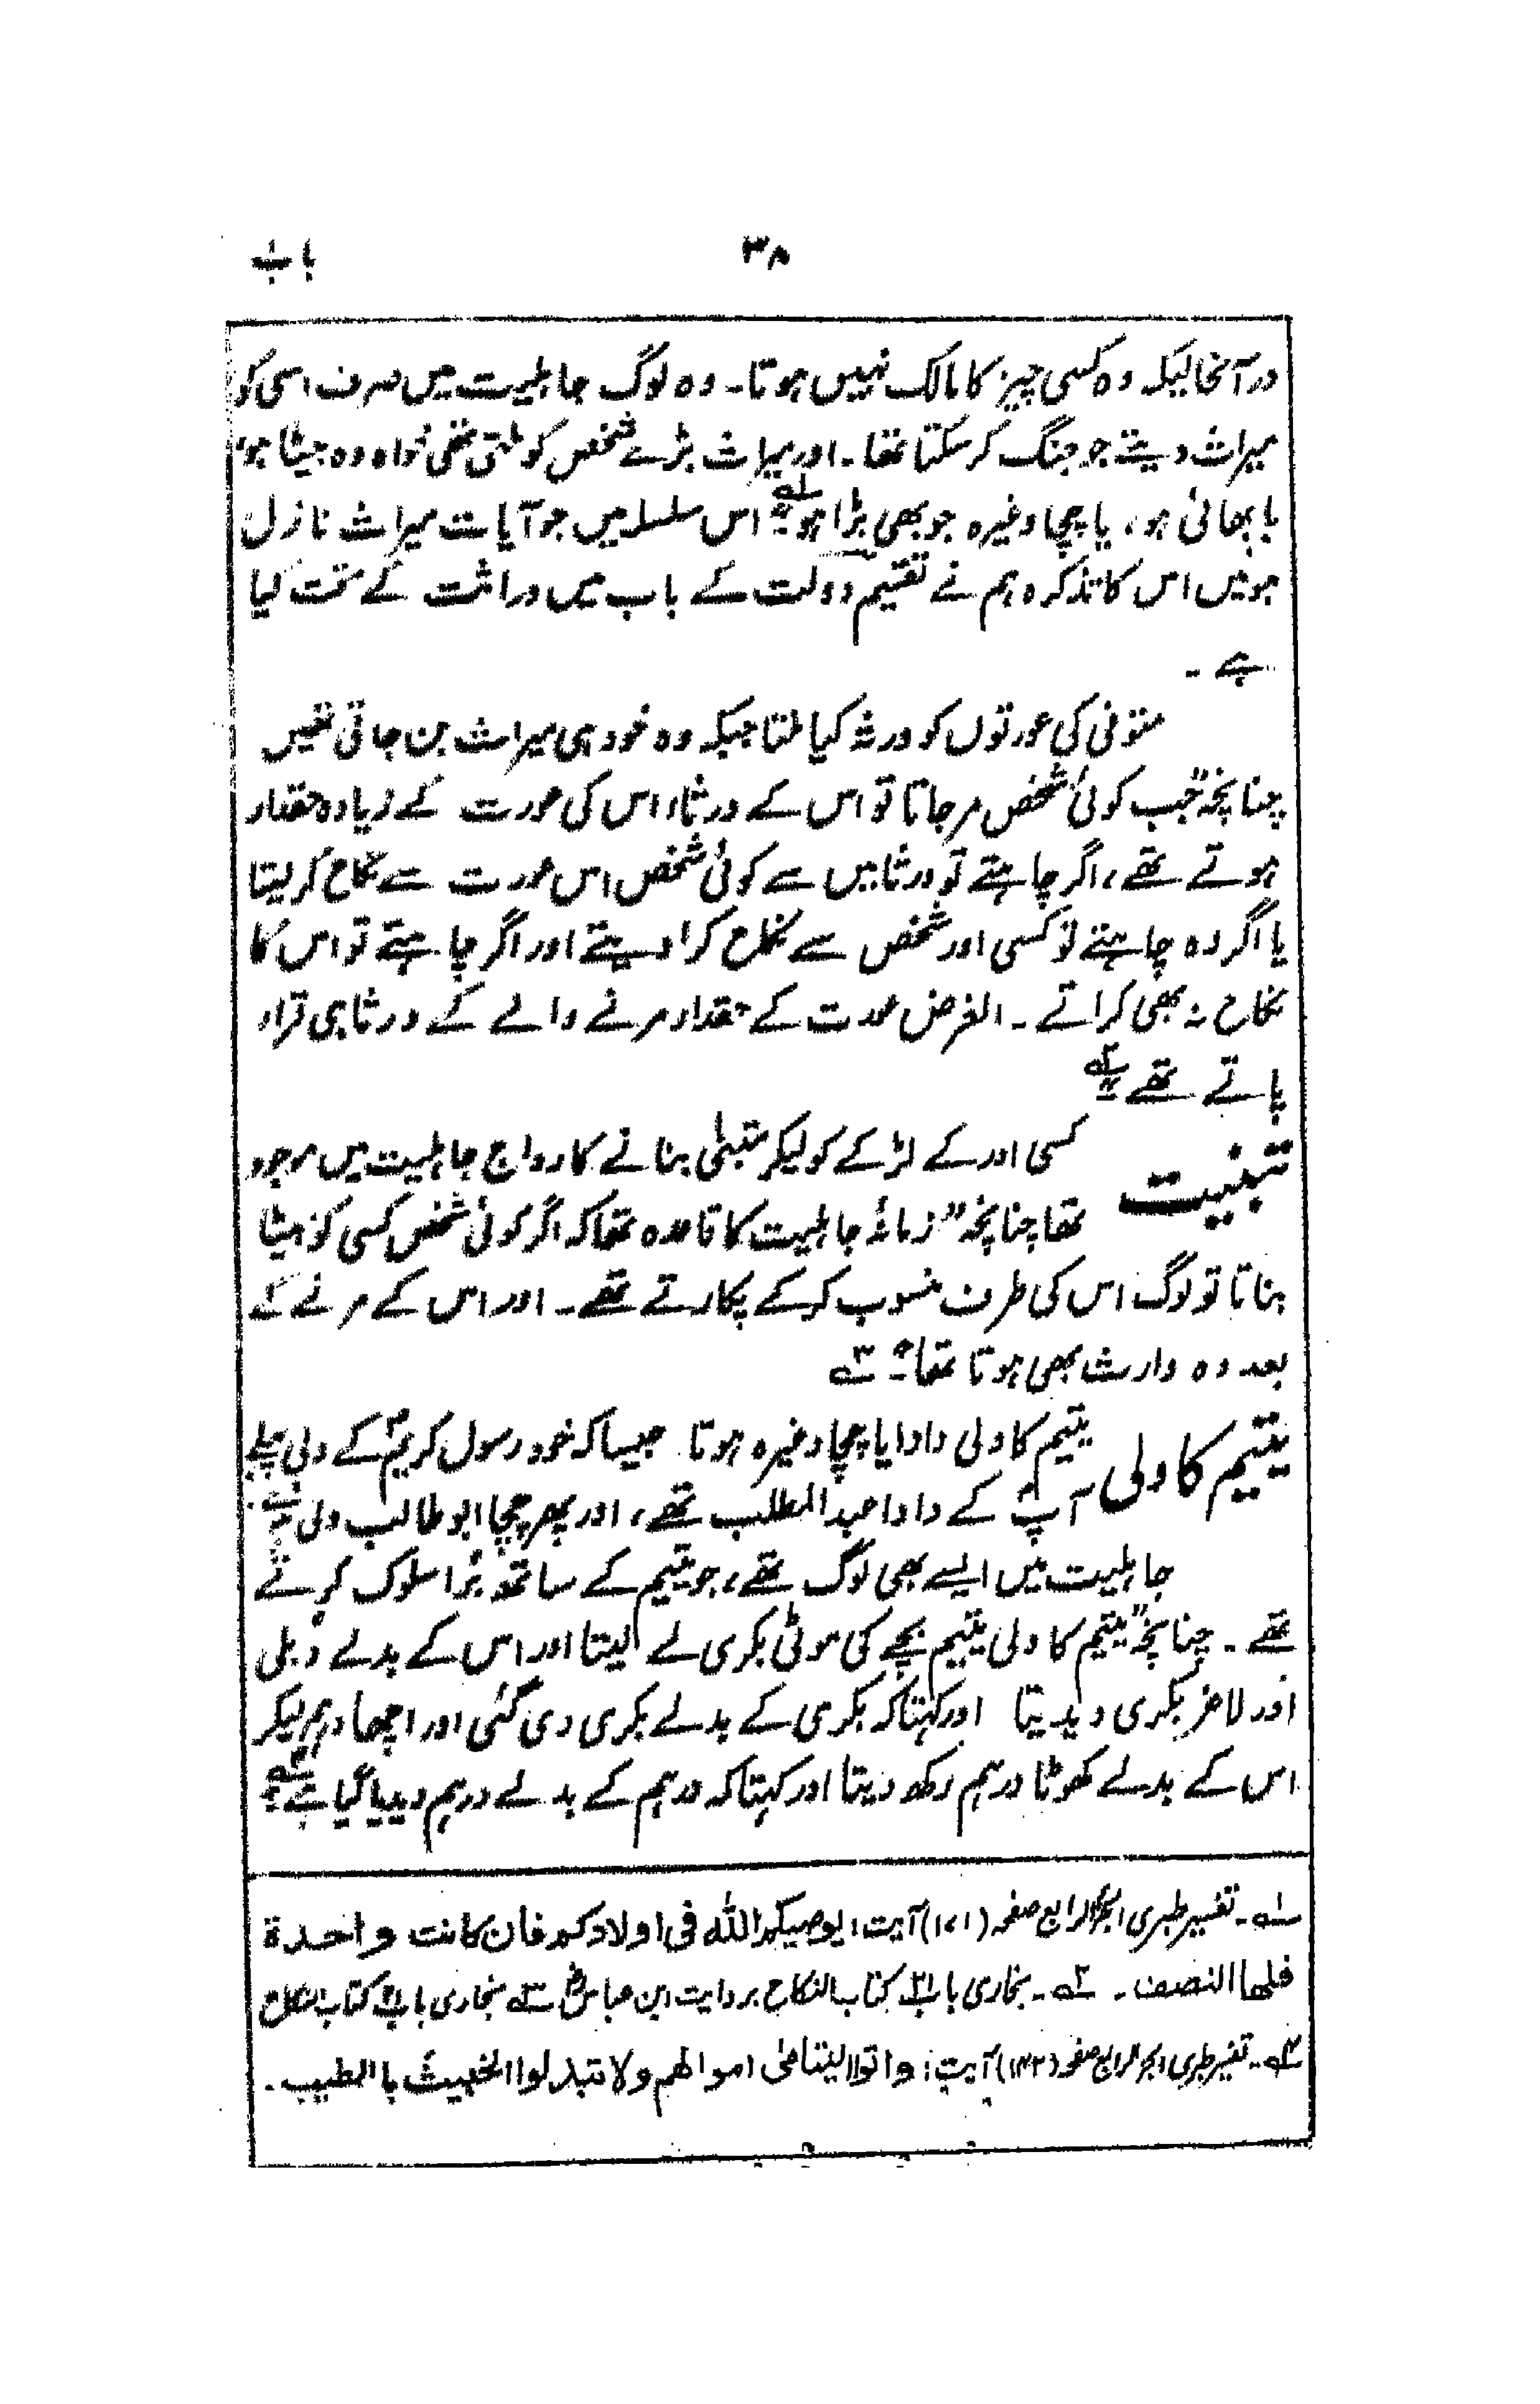 ۳۸
باب
درآنحالیکہ وہ کسی چیز کا مالک نہیں ہوتا۔ وہ لوگ جاہلیت میں صرف اسی کو
میراث دیتے جو جنگ کر سکتا تھا۔ اور میراث بڑے شخص کو ملتی تھی خواہ وہ بیٹا ہو،
یا بھائی ہو، یا چچا وغیرہ جو بھی بڑا ہو۔" ۱؎ اس سلسلہ میں جو آیات میراث نازل
ہوئیں اس کا تذکرہ ہم نے تقسیم دولت کے باب میں وراثت کے تحت کیا
ہے۔
متوفی کی عورتوں کو ورثہ کیا ملتا جبکہ وہ خود ہی میراث بن جاتی تھیں
چنانچہ "جب کوئی شخص مر جاتا تو اس کے ورثاء اس کی عورت کے زیادہ حقدار
ہوتے تھے، اگر چاہتے تو ورثا میں سے کوئی شخص اس عورت سے نکاح کر لیتا
یا اگر وہ چاہتے تو کسی اور شخص سے نکاح کرا دیتے اور اگر چاہتے تو اس کا
نکاح نہ بھی کراتے۔ الغرض عورت کے حقدار مرنے والے کے ورثا ہی قرار
پاتے تھے" ۲؎
تبنیت کسی اور کے لڑکے کو لیکر متبنٰی بنانے کا رواج جاہلیت میں موجود
تھا چنانچہ "زمانۂ جاہلیت کا قاعدہ تھا کہ اگر کوئی شخص کسی کو بیٹا
بناتا تو لوگ اس کی طرف منسوب کر کے پکارتے تھے۔ اور اس کے مرنے کے
بعد وہ وارث بھی ہوتا تھا۔" ۳؎
یتیم کا ولی یتیم کا ولی دادا یا چچا وغیرہ ہوتا۔ جیسا کہ خود رسول کریمؐ کے ولی پہلے
آپؐ کے دادا عبدالمطلب تھے، اور پھر چچا ابو طالب ولی بنے۔
جاہلیت میں ایسے بھی لوگ تھے، جو یتیم کے ساتھ بُرا سلوک کرتے
تھے۔ چنانچہ "یتیم کا ولی یتیم بچے کی موٹی بکری لے لیتا اور اس کے بدلے دبلی
اور لاغر بکری دیدیتا اور کہتا کہ بکری کے بدلے بکری دی گئی اور اچھا درہم لیکر
اس کے بدلے کھوٹا درہم رکھ دیتا اور کہتا کہ درہم کے بدلے درہم دیدیا گیا ہے" ۴؎
۱؎۔ تفسیر طبری الجزء الرابع صفحہ (۱۷۱) آیت: یوصیکم اللہ فی اولادکم فان کانت واحدة
فلها النصف۔ ۲؎۔ بخاری باب کتاب النکاح بروایت ابن عباسؓ ۳؎ بخاری باب کتاب النکاح
۴؎۔ تفسیر طبری الجزء الرابع صفحہ (۱۴۲) آیت: واتوا الیتامٰی اموالهم ولا تتبدلوا الخبیث باالطیب۔